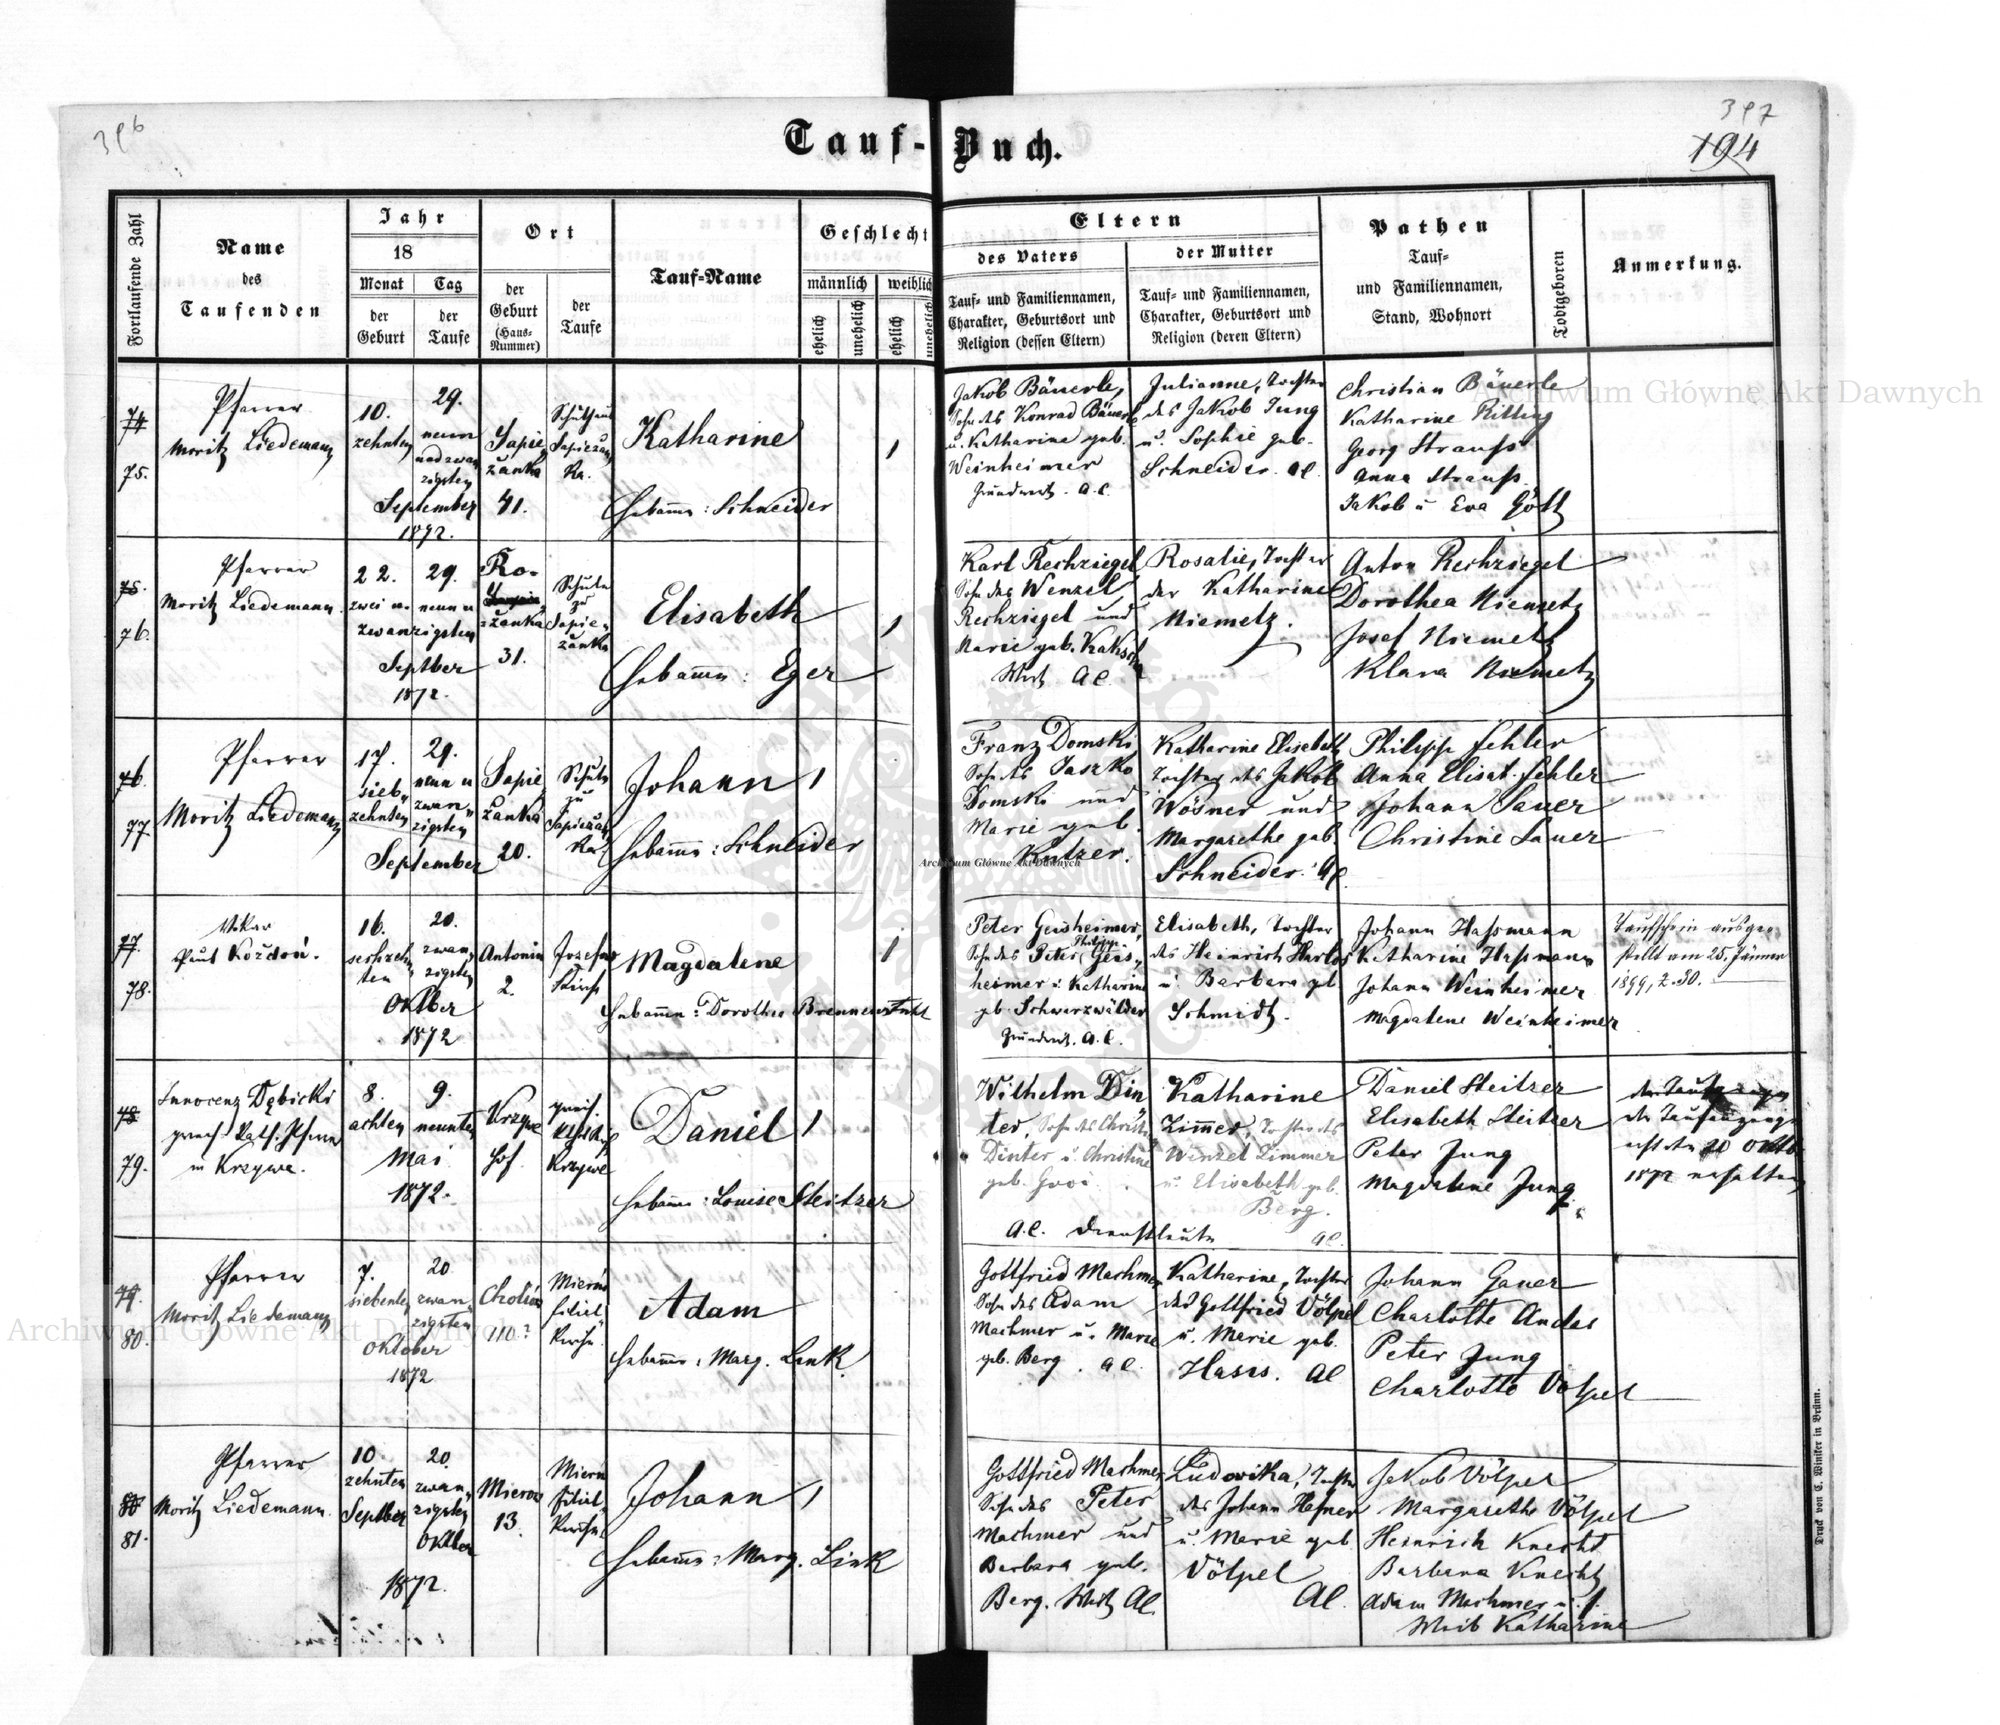 396
Tauf-Buch.
397
194
Fortlaufende Zahl
Name
des
Taufenden
Jahr
18
Monat
Tag
der
Geburt
der
Taufe
Ort
der
Geburt
(Haus-
Nummer)
der
Taufe
Tauf-Name
Geschlecht
männlich
weiblich
ehelich
unehelich
ehelich
unehelich
Eltern
des Vaters
Tauf- und Familiennamen,
Charakter, Geburtsort und
Religion (dessen Eltern)
der Mutter
Tauf- und Familiennamen,
Charakter, Geburtsort und
Religion (deren Eltern)
Pathen
Tauf-
und Familiennamen,
Stand, Wohnort
Todtgeboren
Anmerkung.
74
75.
Pfarrer
Moritz Liedemann
10.
zehnten
29.
neun
undzwan
zigsten
September
1872.
Sapie
zanka
41.
Schulhaus
Sapiezan
ka.
Katharine
Hebamme: Schneider
1
Jakob Bäuerle,
Sohn des Konrad Bäuerle
u. Katharine geb.
Weinheimer
Grundwirth. A.C.
Julianne, Tochter
des Jakob Jung
u. Sophie geb.
Schneider. AC.
Christian Bäuerle
Katharine Ritting
Georg Strauss
Anna Strauss
Jakob u Eva Gött
75.
76.
Pfarrer
Moritz Liedemann.
22.
zwei u.
zwanzigsten
29.
neun u
Septber
1872.
Ro-
zanka
31.
Schule
zu
Sapie„
zanka
Elisabeth
Hebamme: Eger
1
Karl Rechziegel
Sohn des Wenzel
Rechziegel und
Marie geb.
Wirth AC
Rosalie, Tochter
der Katharine
Niemetz.
Anton Rechziegel
Dorothea Niemetz
Josef Niemetz
Klara Niemetz
76.
77.
Pfarrer
Moritz Liedemann
17.
sieb„
zehnten
29.
neun u
zwan„
zigsten
September
Sapie
zanka
20.
Schule
zu
Sapiezan
ka
Johann
Hebamme: Schneider
1
Franz Domski,
Sohn des Jaszko
Domski und
Marie geb.
Kutzer.
Katharine Elisabeth
Tochter des Jakob
Wösner und
Margarethe geb.
Schneider. AC.
Philipp Fehler
Anna Elisab. Fehler
Johann Sauer
Christine Sauer
77.
78.
Vikar
Paul Koždoń.
16.
sechzehn
ten
20.
zwan„
zigsten
Oktber
1872
Antonin
2.
Josefow
Magdalene
Hebamme: Dorothea Brennenstuhl
1
Peter Geisheimer,
Philipp
Sohn des Peter Geis„
heimer u. Katharine
geb. Schwarzwälder
Grundwirth. A.C.
Elisabeth, Tochter
des Heinrich Harlos
u. Barbara gb
Schmidt.
Johann Hassmann
Katharine Hassmann
Johann Weinheimer
Magdalene Weinheimer
Taufschein ausge„
stellt am 25. Jänner
1899, Z. 30.
78
79.
Innocenz Dębicki
griech. kath. Pfarrer
in Krzywe.
8.
achten
9.
neunten
Mai
1872.
Krzywe
Hof.
griech.
Krzywe
Daniel
Hebamme: Louise Steitzer
1
Wilhelm Din
ter, Sohn des Christi
Dinter u. Christine
geb.
A.C. Dienstleute
Katharine
Zimmer, Tochter des
Wenzel Zimmer
u. Elisabeth geb.
Berg.
AC.
Daniel Steitzer
Elisabeth Steitzer
Peter Jung
Magdalene Jung.
die Taufanzeige
Oktob.
1872 erhalten
79.
80.
Pfarrer
Moritz Liedemann
7.
siebenten
20
zwan„
zigsten
Oktober
1872
Cholin
110?
Mierów
Filial„
Kirche
Adam
Hebamme: Marg. Link.
Gottfried Machmer
Sohn des Adam
Machmer u. Marie
geb. Berg. AC.
Katharine, Tochter
des Gottfried Völpel
u. Marie geb.
Hasis. AC
Johann Gauer
Charlotte Andes
Peter Jung
Charlotte Völpel
80
81.
Pfarrer
Moritz Liedemann.
10.
zehnten
Septber
20.
zwan„
zigsten
Oktber
1872.
Mierow
13.
Mierów
Filial„
Kirche
Johann
Hebamme: Marg. Link
1
Gottfried Machmer,
Sohn des Peter
Machmer und
Barbara geb.
Berg. Wirth AC.
Ludovika, Tochter
des Johann Hefner
u. Marie geb
Völpel
AC.
Jakob Völpel
Margarethe Völpel
Heinrich Knecht
Barbara Knecht
Adam Machmer u. s.
Weib Katharine
Druck von C. Winiker in Brünn.
Archiwum Główne Akt Dawnych
Archiwum Główne Akt Dawnych
Archiwum Główne Akt Dawnych